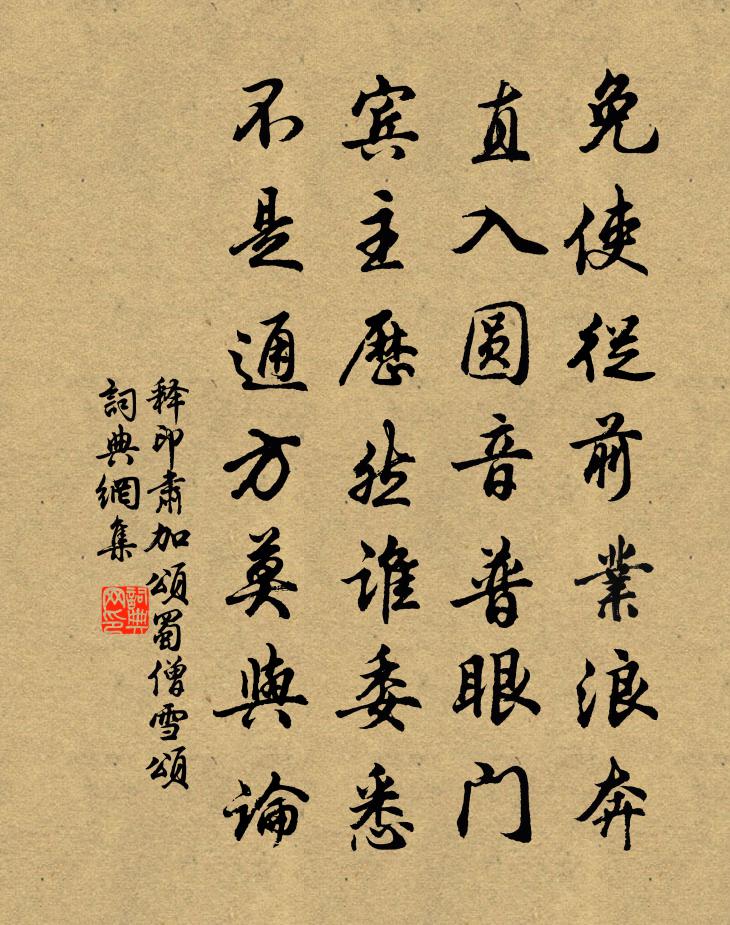 免使從前業浪奔
直入圓音普眼门
賓主歷然谁委悉
不是通方莫與論
释印肃加頌蜀僧雪頌
詞典網集
詞典網印